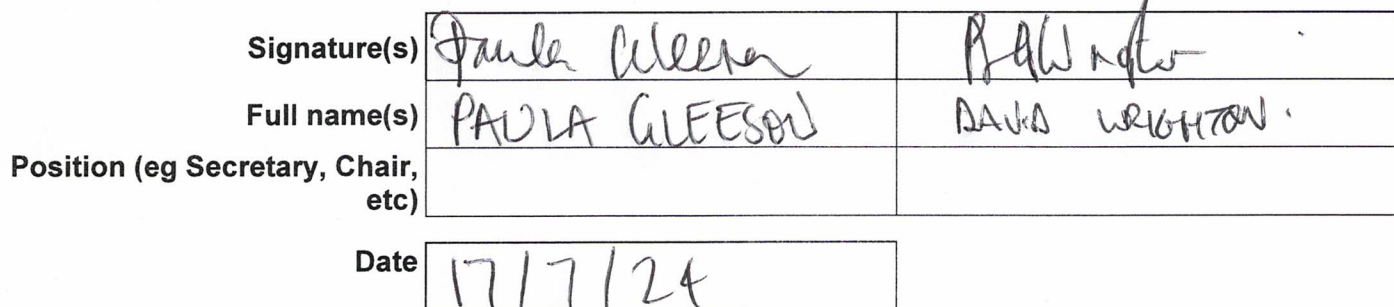 Signature(s) Paula Gleeson
Full name(s) PAULA GLEESON DAVID WRIGHTON.
Position (eg Secretary, Chair,
etc)
Date 17/7/24